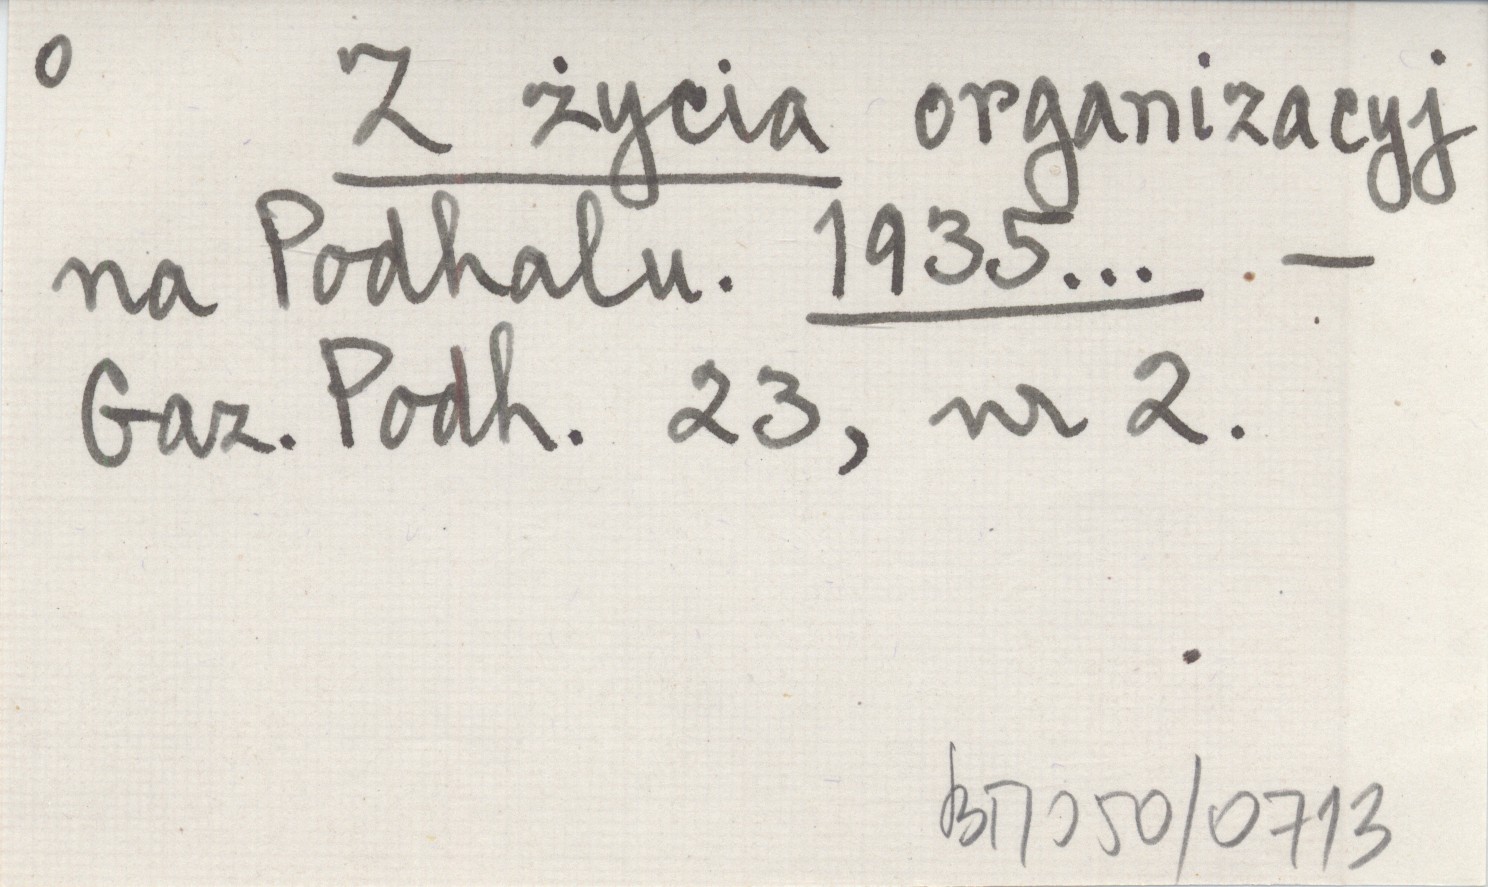 o Z życia organizacyj
na Podhalu. 1935... . —
Gaz. Podh. 23, nr 2.
/0713